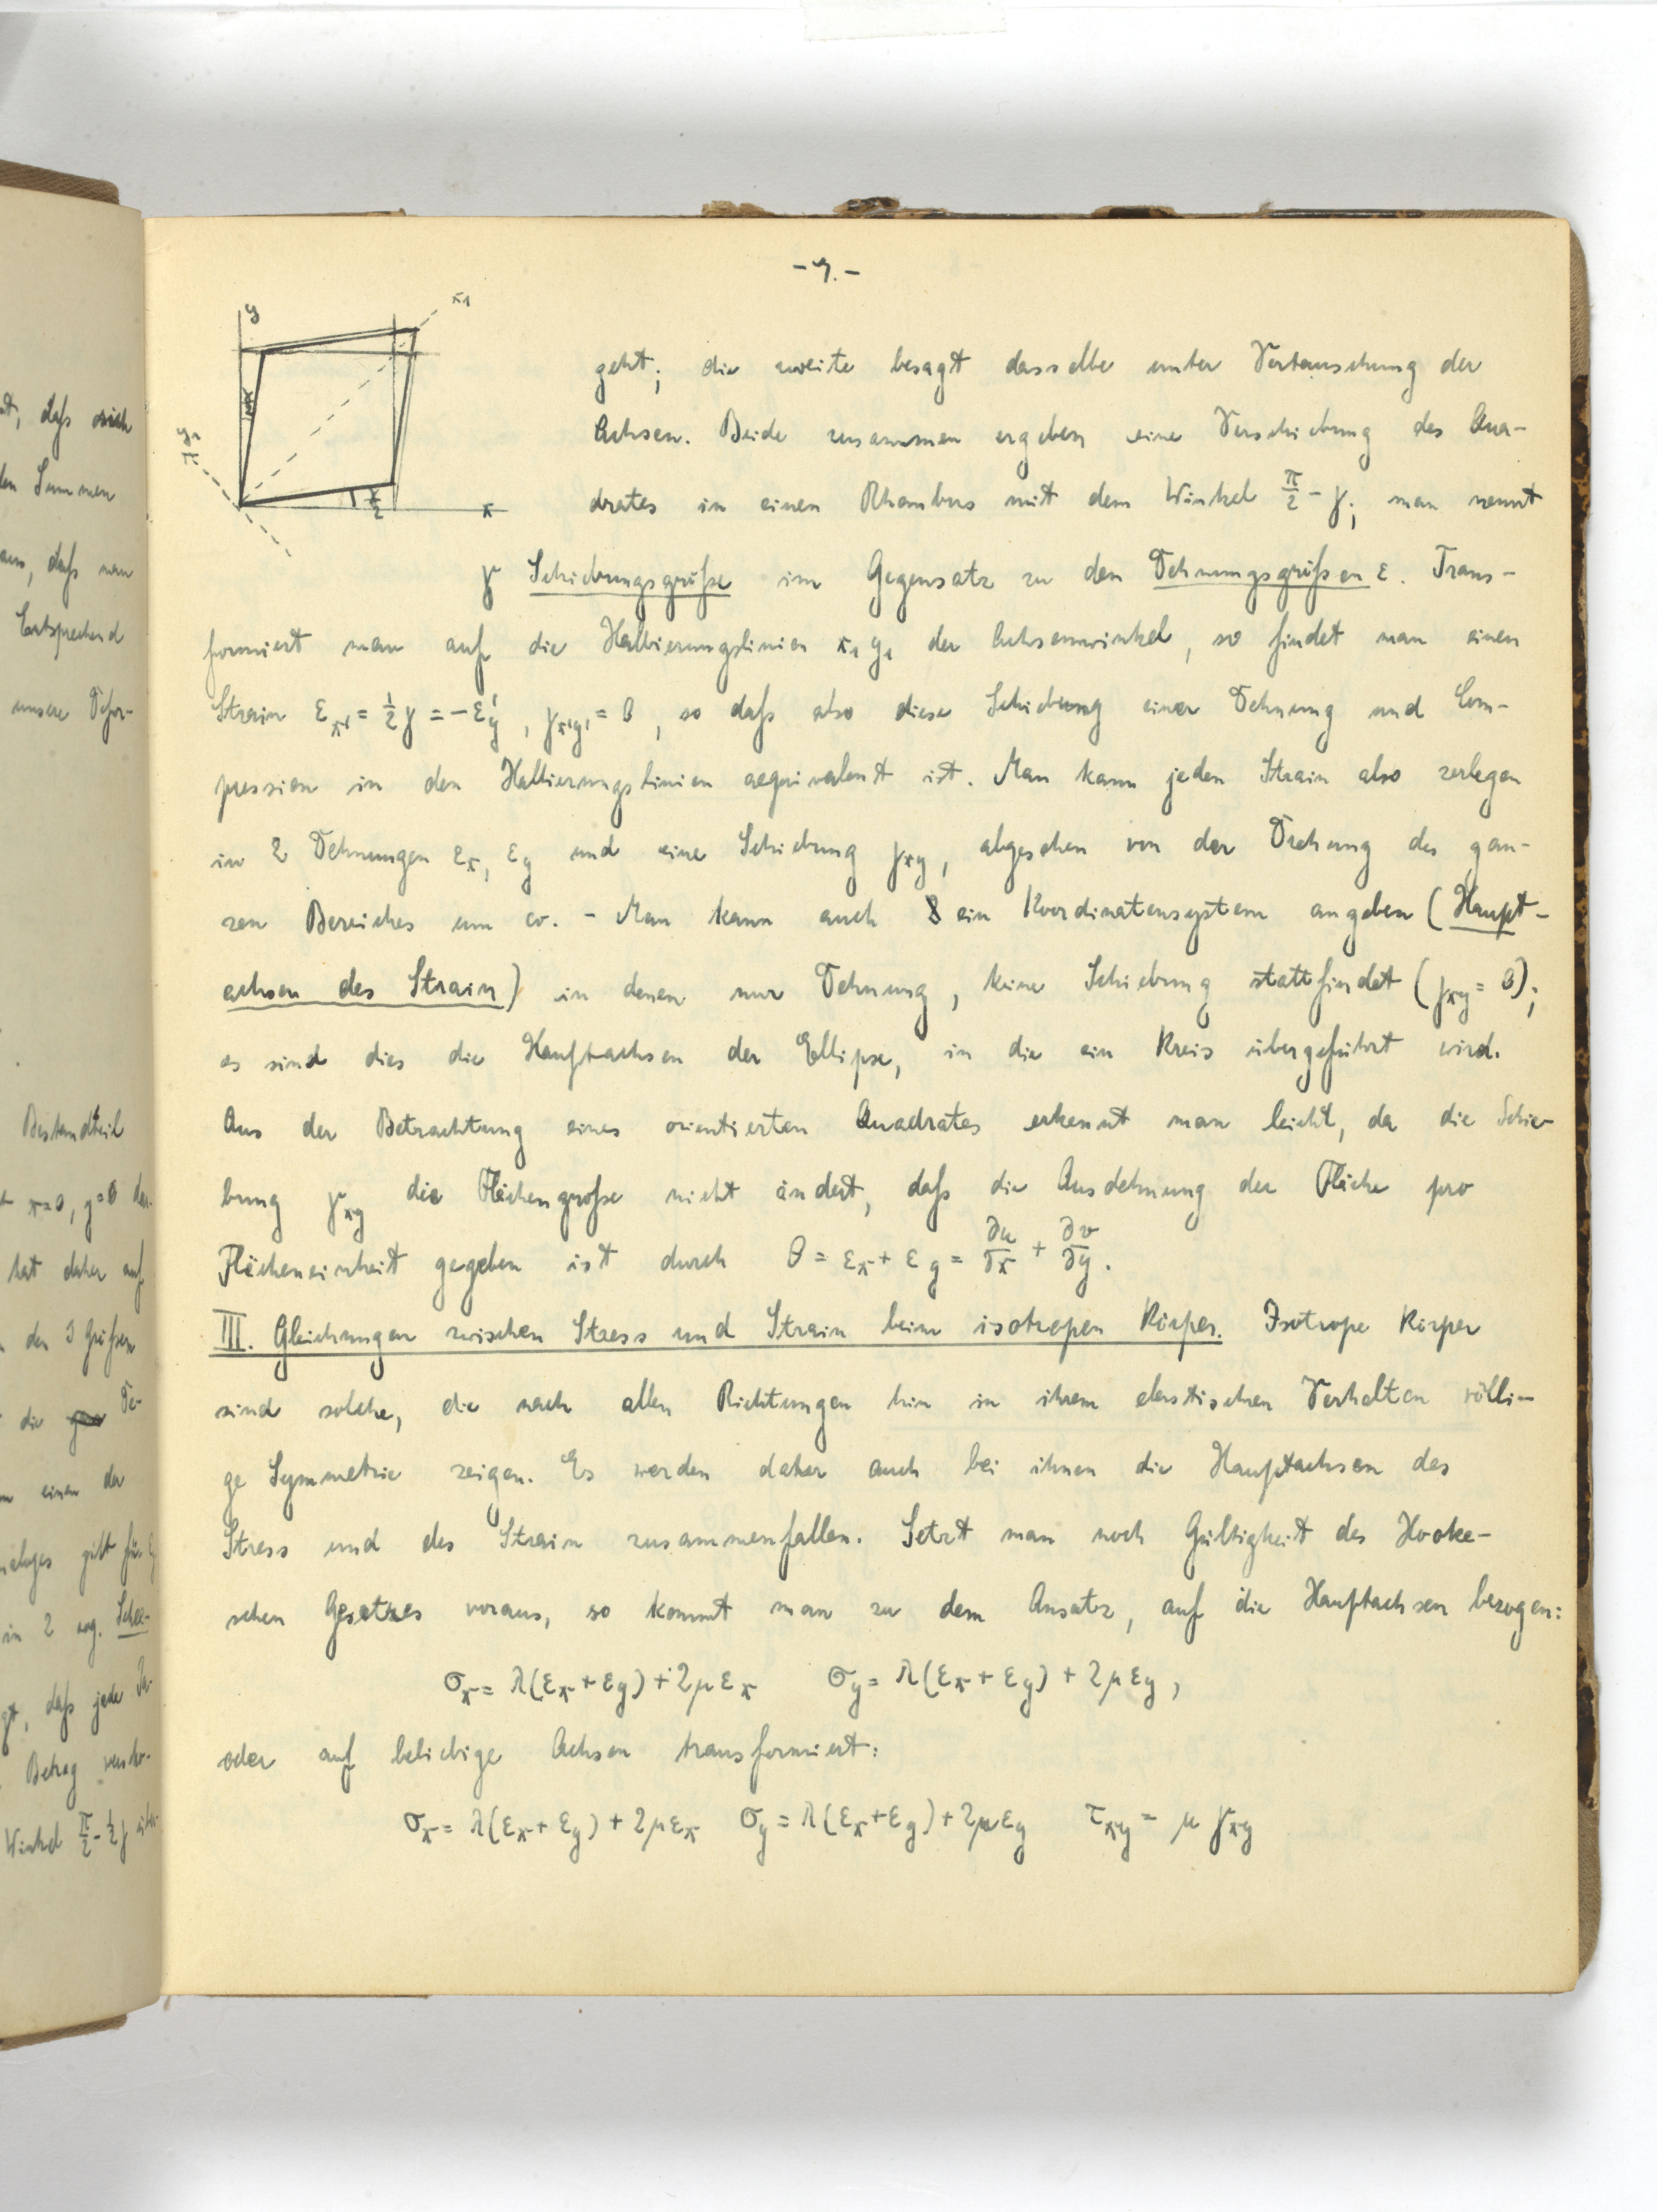 -7.-
y
x₁
y₁
γ/2
γ/2
x
geht; die zweite besagt dasselbe unter Vertauschung der
Achsen. Beide zusammen ergeben eine Verschiebung des Qua-
drates in einen Rhombus mit dem Winkel π/2 - γ; man nennt
γ Schiebungsgröße im Gegensatz zu den Dehnungsgrößen ε. Trans-
formiert man auf die Halbierungslinien x₁ y₁ der Achsenwinkel, so findet man einen
Strain εx' = 1/2 γ = -εy', γx'y' = 0, so daß also diese Schiebung einer Dehnung und Com-
pression in den Halbierungslinien aequivalent ist. Man kann jeden Strain also zerlegen
in 2 Dehnungen εx, εy und eine Schiebung γxy, abgesehen von der Drehung des gan-
zen Bereiches um ω. - Man kann auch ein Koordinatensystem angeben (Haupt-
achsen des Strain) in denen nur Dehnung, keine Schiebung stattfindet (γxy = 0);
es sind dies die Hauptachsen der Ellipse, in die ein Kreis übergeführt wird.
Aus der Betrachtung eines orientierten Quadrates erkennt man leicht, da die Schie-
bung γxy die Flächengröße nicht ändert, daß die Ausdehnung der Fläche pro
Flächeneinheit gegeben ist durch θ = εx + εy = ∂u/∂x + ∂v/∂y.
III. Gleichungen zwischen Stress und Strain beim isotropen Körper. Isotrope Körper
sind solche, die nach allen Richtungen hin in ihrem elastischen Verhalten völli-
ge Symmetrie zeigen. Es werden daher auch bei ihnen die Hauptachsen des
Stress und des Strain zusammenfallen. Setzt man noch Gültigkeit des Hooke-
schen Gesetzes voraus, so kommt man zu dem Ansatz, auf die Hauptachsen bezogen:
σx = λ(εx + εy) + 2μεx σy = λ(εx + εy) + 2μεy,
oder auf beliebige Achsen transformiert:
σx = λ(εx + εy) + 2μεx σy = λ(εx + εy) + 2μεy τxy = μ γxy